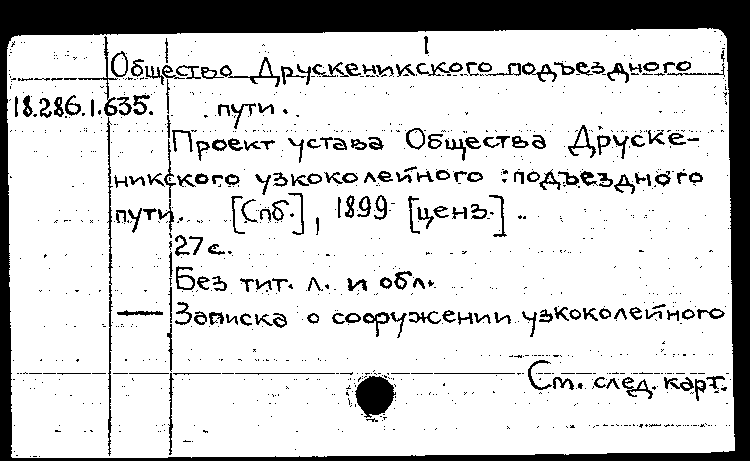 1
Общество Друскеникского подъездного
18.286.1.635. пути.
Проект устава Общества Друске-
никского узкоколейного подъездного
пути. [Спб.], 1899 [ценз.].
27 с.
Без тит. л. и обл.
— Записка о сооружении узкоколейного
См. след. карт.